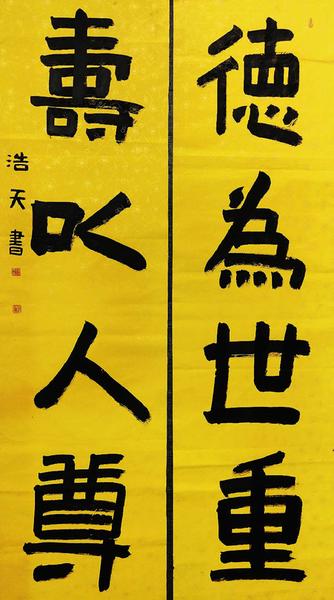 德為世重
壽以人尊
浩天書